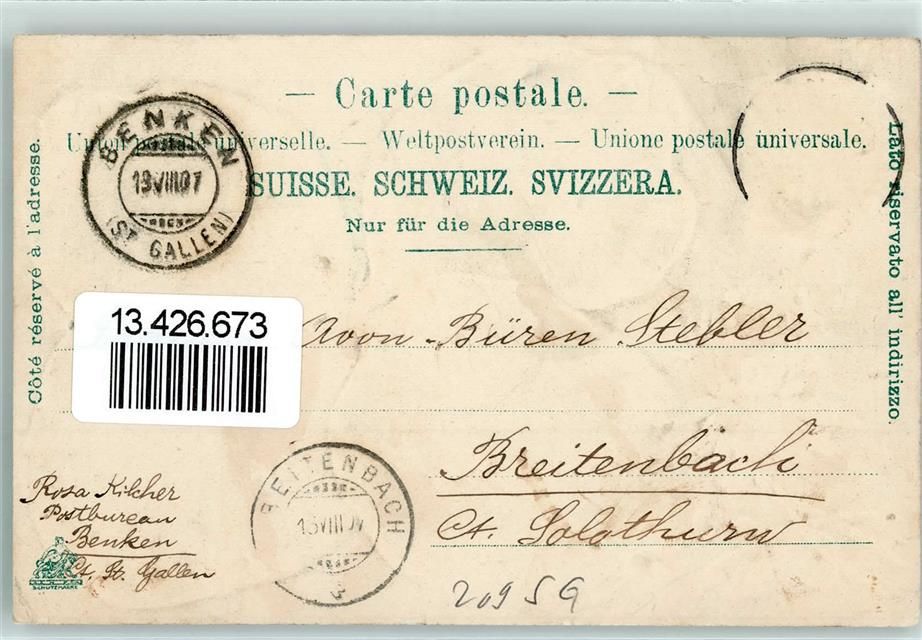 — Carte postale. —
Union postale universelle. — Weltpostverein. — Unione postale universale.
SUISSE. SCHWEIZ. SVIZZERA.
Nur für die Adresse.
Côté réservé à l'adresse.
Lato riservato all' indirizzo.
BENKEN
13 VIII 07
(ST GALLEN)
13.426.673
von-Büren Stebler
Breitenbach
Ct. Solothurn
REITENBACH
13 VIII 07
Rosa Kilcher
Postbureau
Benken
Ct. St. Gallen
SCHUTZMARKE
209 SG